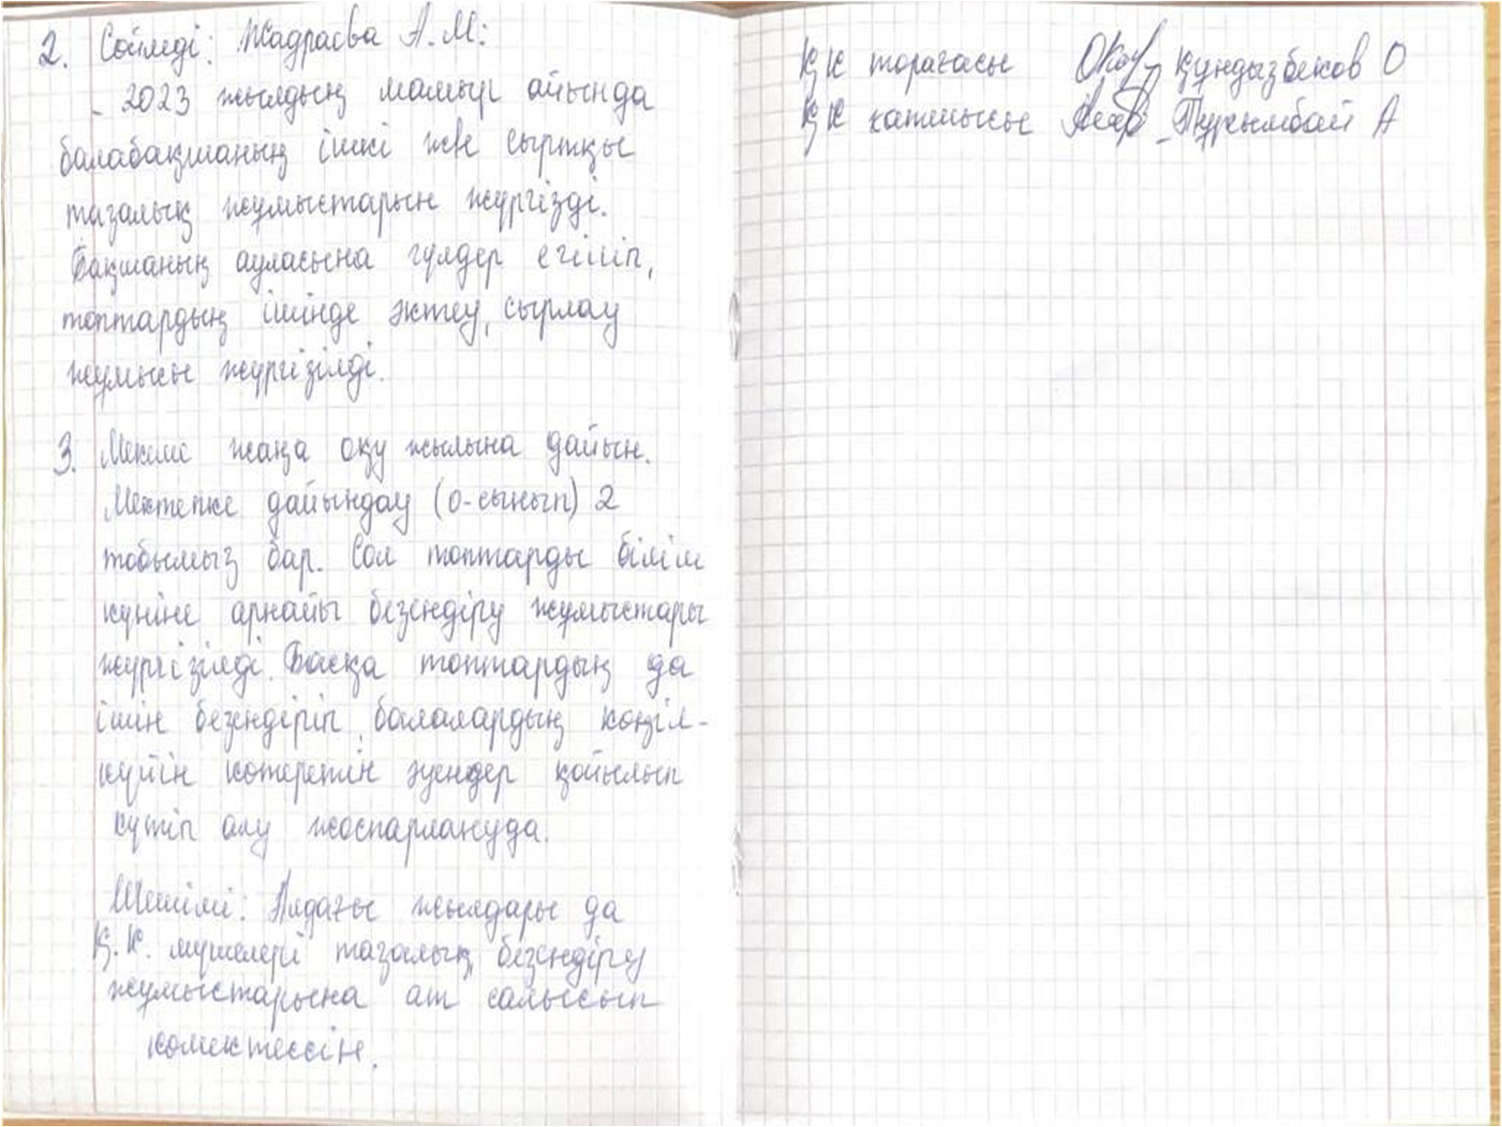 2. Сөйледі: Жадраева А.М:
- 2023 жылдың мамыр айында
балабақшаның ішкі жән сыртқы
тазалық жұмыстарын жүргізді.
Бақшаның ауласына гүлдер егіліп,
топтардың ішінде әктеу, сырлау
жұмысы жүргізілді.
3. Мекеме жаңа оқу жылына дайын.
Мектепке дайындау (0-сынып) 2
тобымыз бар. Сол топтарды білім
күніне арнайы безендіру жұмыстары
жүргізілді. Басқа топтардың да
ішін безендіріп, балалардың көңіл-
күйін көтеретін әуендер қойылып
күтіп алу жоспарлануда.
Шешімі: Алдағы жылдары да
Қ.К. мүшелері тазалық, безендіру
жұмыстарына ат салысып
көмектессін.
ҚК төрағасы Құндызбеков О
ҚК хатшысы Тұрымбай А